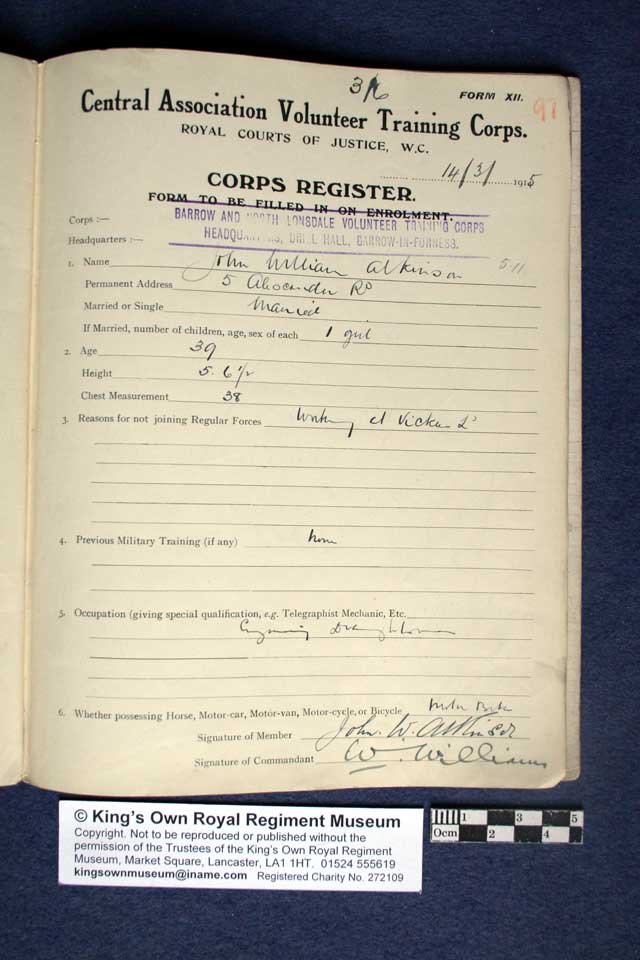 3/6
FORM XII.
97
Central Association Volunteer Training Corps.
ROYAL COURTS OF JUSTICE, W.C.
14/3/1915
CORPS REGISTER.
FORM TO BE FILLED IN ON ENROLMENT.
Corps :—
BARROW AND NORTH LONSDALE VOLUNTEER TRAINING CORPS
Headquarters :—
HEADQUARTERS, DRILL HALL, BARROW-IN-FURNESS.
1. Name John William Atkinson 5.11
Permanent Address 5 Alexander Rd
Married or Single Married
If Married, number of children, age, sex of each 1 girl
2. Age 39
Height 5. 6 1/2
Chest Measurement 38
3. Reasons for not joining Regular Forces Working at Vickers Ld
4. Previous Military Training (if any) None
5. Occupation (giving special qualification, e.g. Telegraphist Mechanic, Etc.
Engineering Draughtsman
6. Whether possessing Horse, Motor-car, Motor-van, Motor-cycle, or Bicycle
Signature of Member John. W. Atkinson
Signature of Commandant W. Williams
© King's Own Royal Regiment Museum
Copyright. Not to be reproduced or published without the
permission of the Trustees of the King's Own Royal Regiment
Museum, Market Square, Lancaster, LA1 1HT. 01524 555619
kingsownmuseum@iname.com Registered Charity No. 272109
0cm 1 2 3 4 5